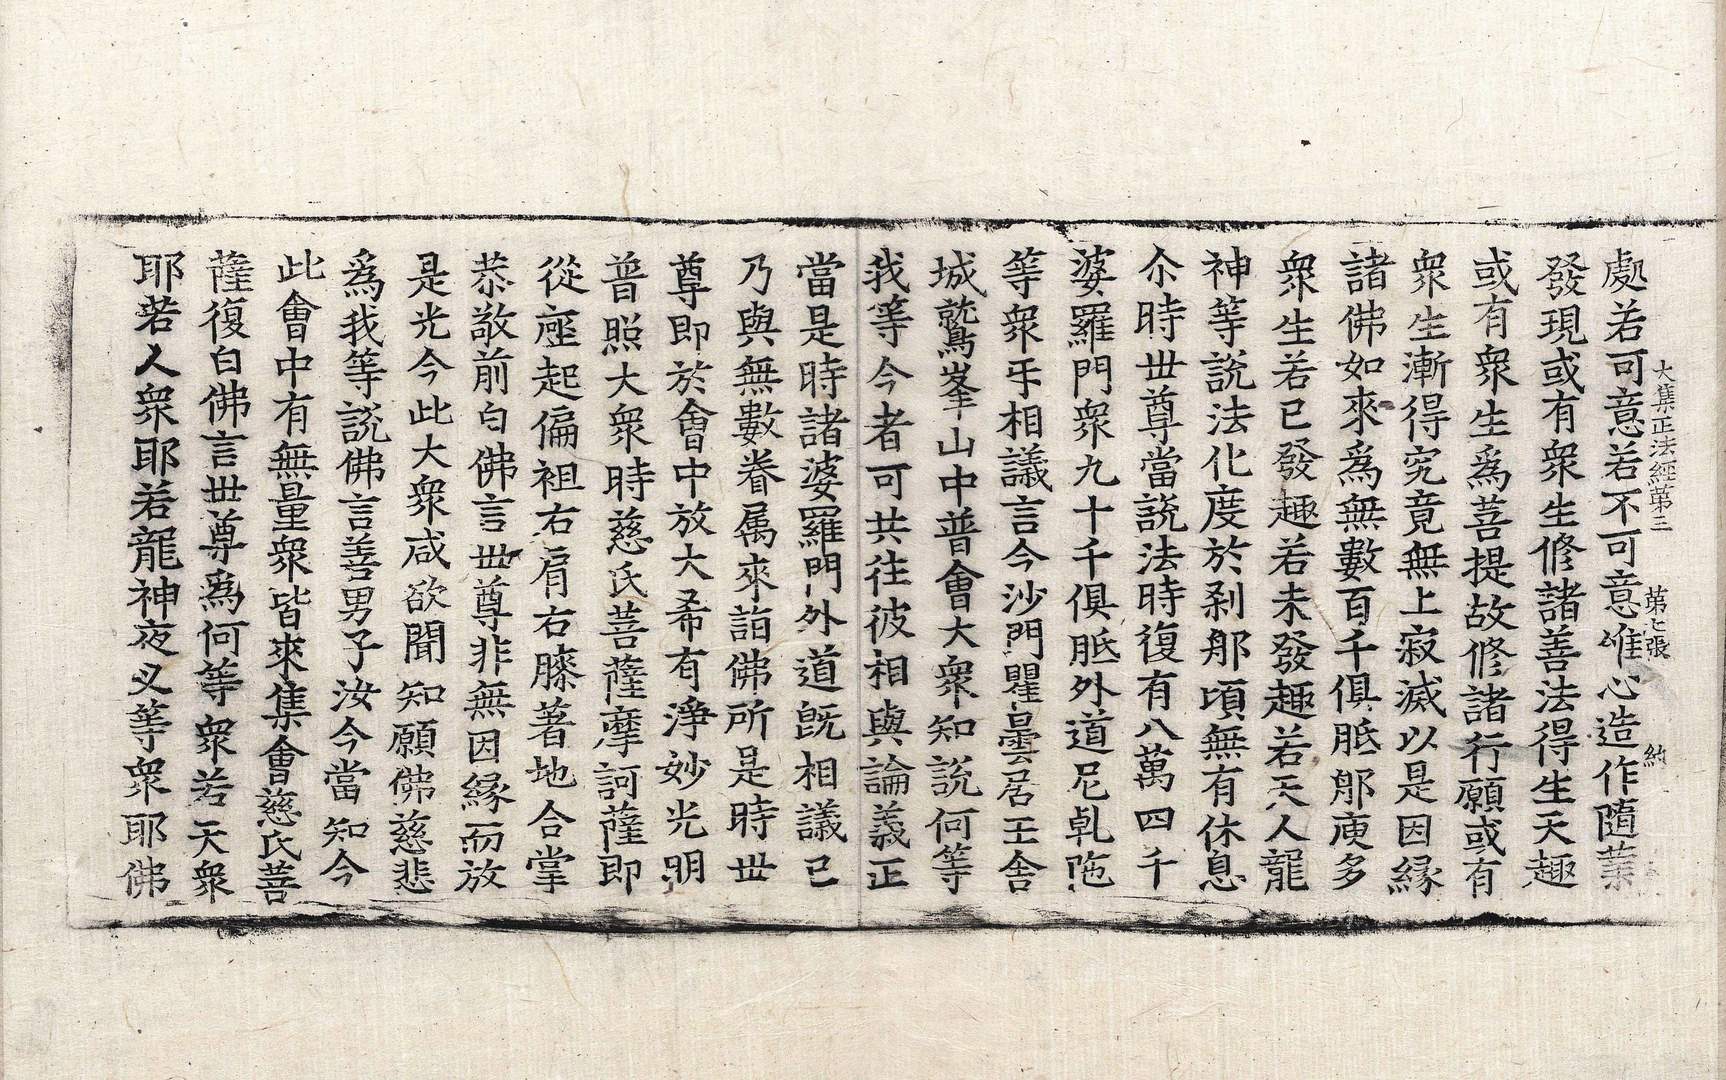 大集正法經第三 第七張 約
處若可意若不可意唯心造作隨業
發現或有衆生修諸善法得生天趣
或有衆生爲菩提故修諸行願或有
衆生漸得究竟無上寂滅以是因緣
諸佛如來爲無數百千俱胝那庾多
衆生若已發趣若未發趣若天人龍
神等說法化度於刹那頃無有休息
尒時世尊當說法時復有八萬四千
婆羅門衆九十千俱胝外道尼乹陁
等衆㸦相議言今沙門瞿曇居王舍
城鷲峯山中普會大衆知說何等
我等今者可共往彼相與論義正
當是時諸婆羅門外道旣相議已
乃與無數眷属來詣佛所是時世
尊即於會中放大希有淨妙光明
普照大衆時慈氏菩薩摩訶薩即
從座起偏袒右肩右膝著地合掌
恭敬前白佛言世尊非無因緣而放
是光今此大衆咸欲聞知願佛慈悲
爲我等說佛言善男子汝今當知今
此會中有無量衆皆來集會慈氏菩
薩復白佛言世尊爲何等衆若天衆
耶若人衆耶若龍神夜叉等衆耶佛